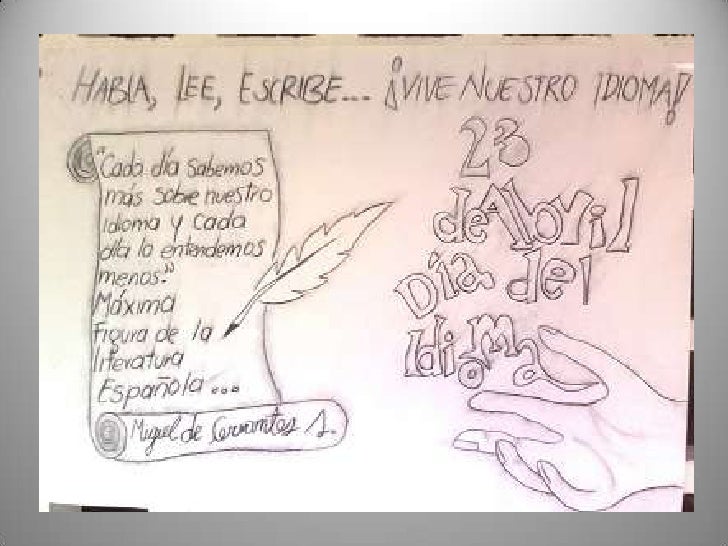 HABLA, LEE, ESCRIBE... ¡VIVE NUESTRO IDIOMA!
"Cada día sabemos
más sobre nuestro
idioma y cada
día lo entendemos
menos."
Máxima
Figura de la
literatura
Española...
Miguel de Cervantes S.
23
de Abril
Día del
Idioma